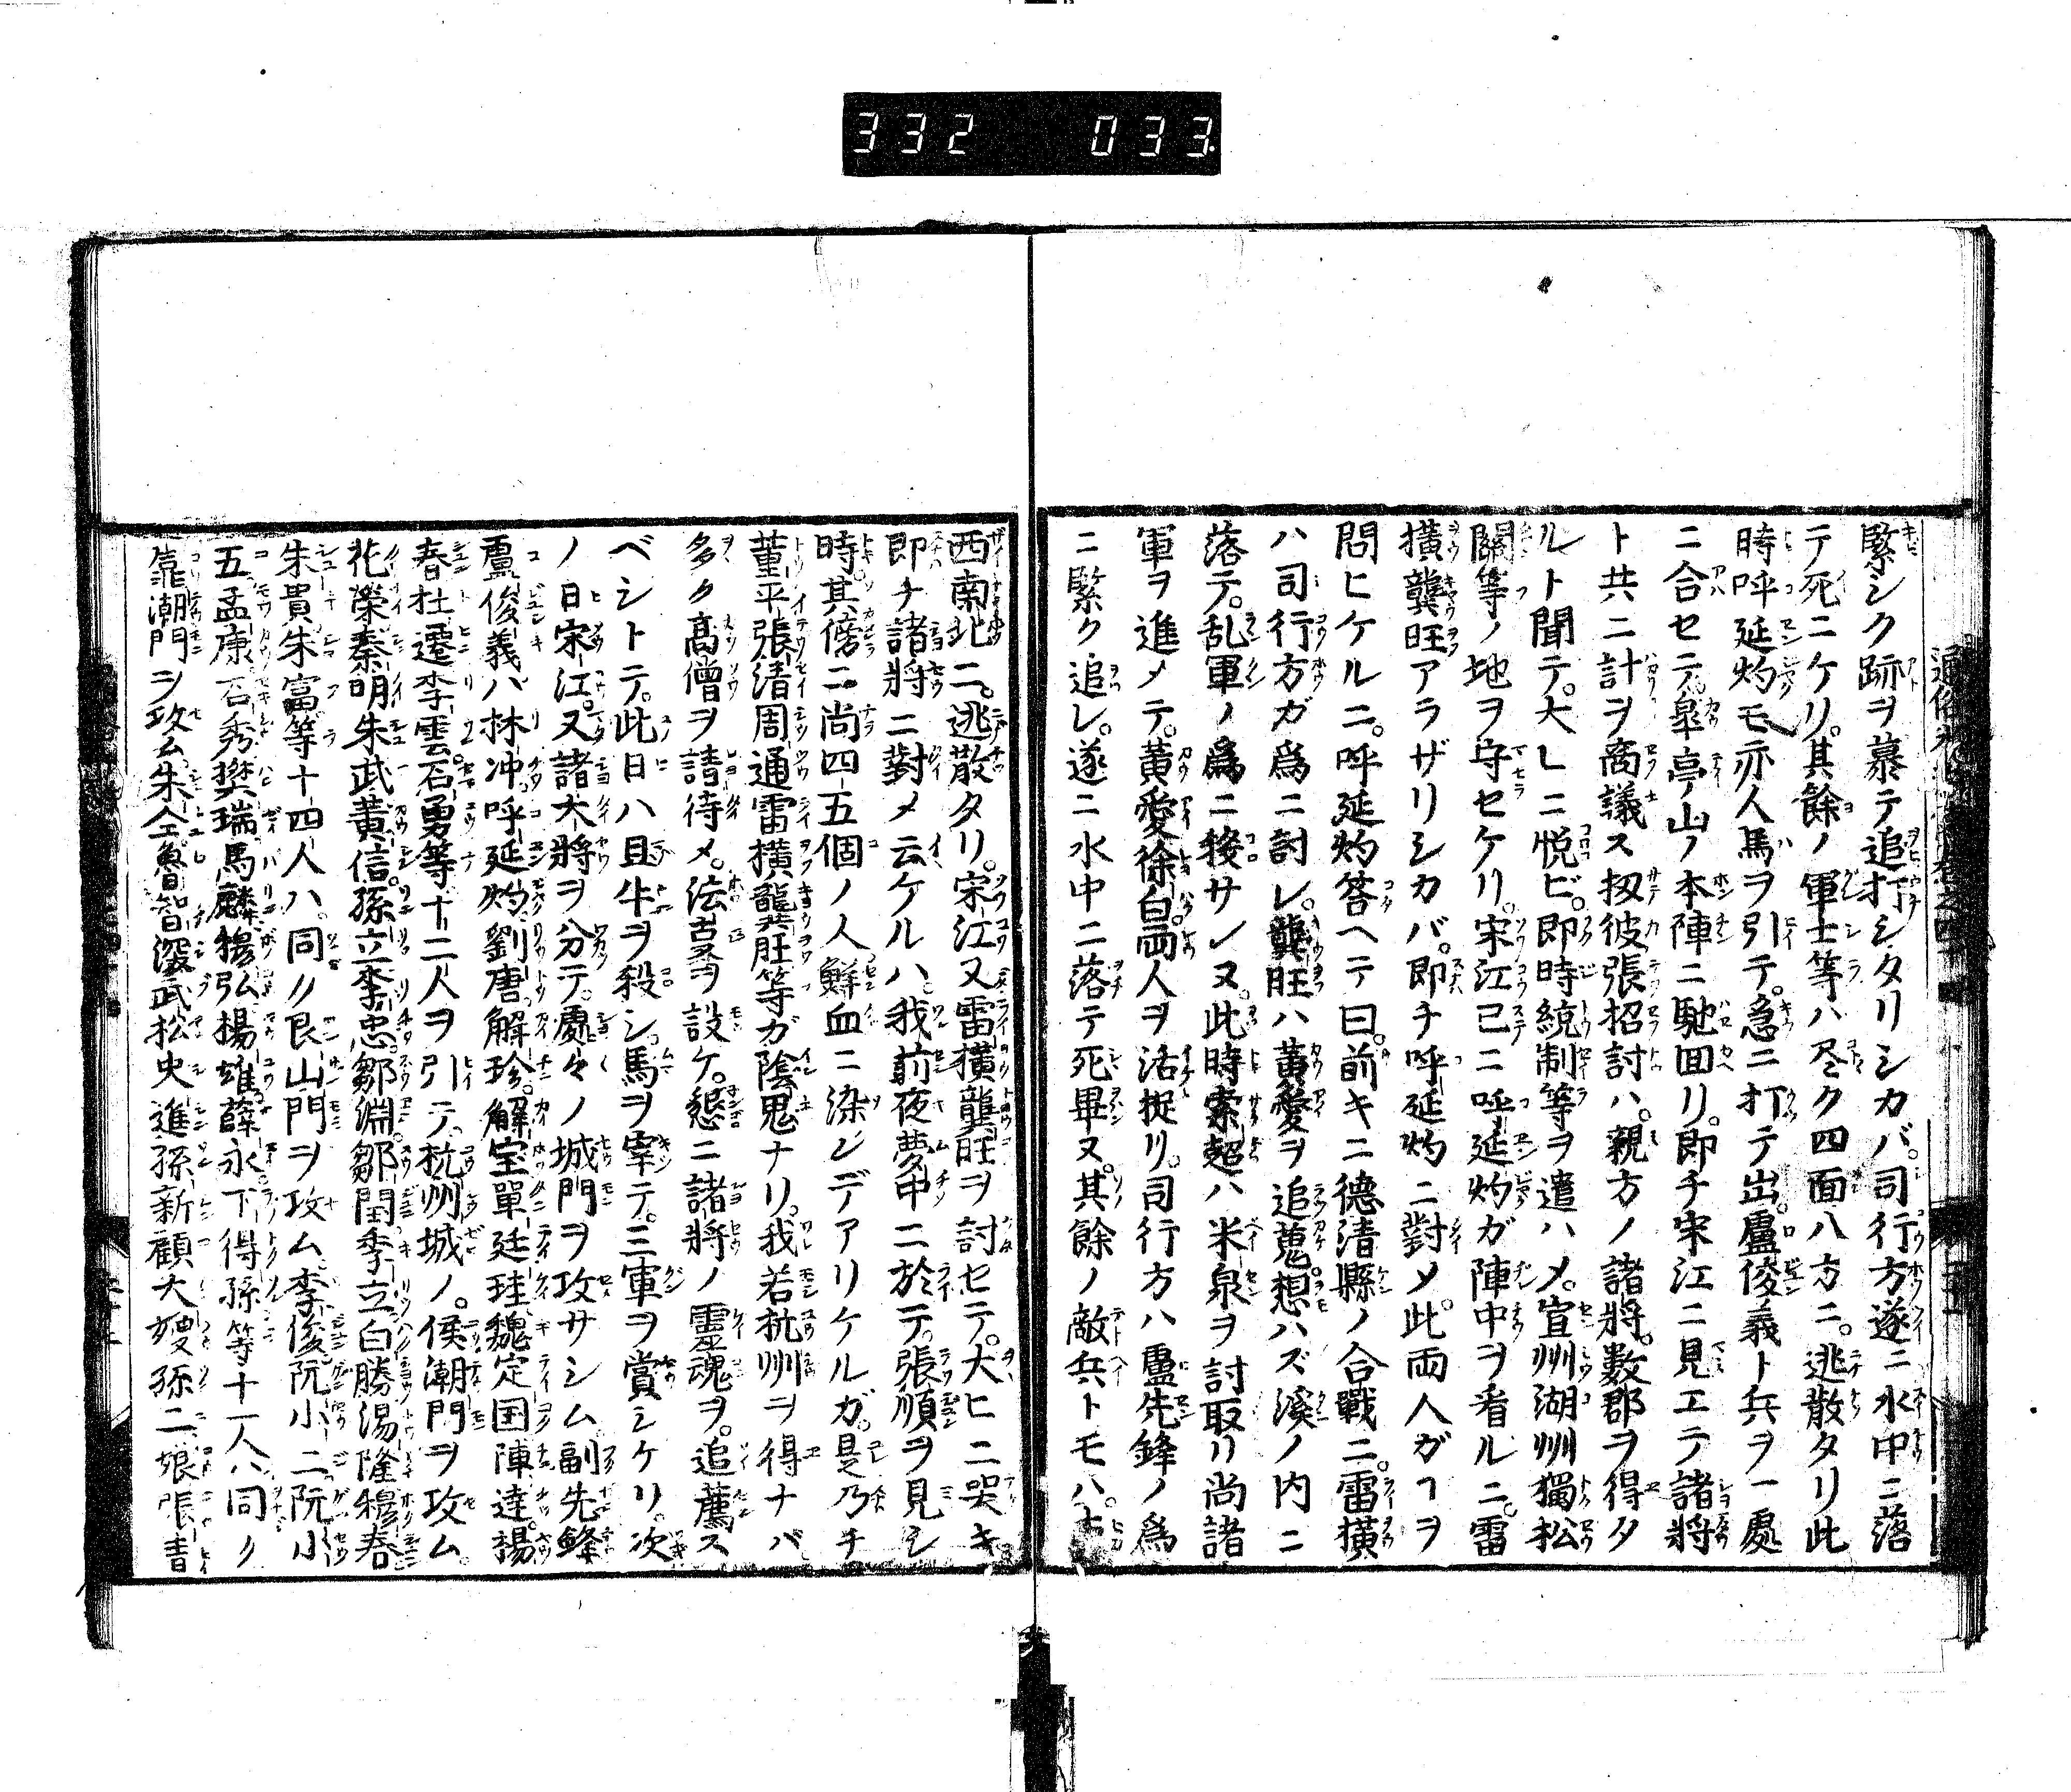 332 033
緊シク跡ヲ慕テ追打シタリシカバ。司行方遂ニ水中ニ落
テ死ニケリ。其餘ノ軍士等ハ尽ク四面八方ニ。逃散タリ此
時呼延灼モ亦人馬ヲ引テ。急ニ打テ出。盧俊義ト兵ヲ一處
ニ合セテ。皐亭山ノ本陣ニ馳回リ。即チ宋江ニ見エテ諸將
ト共ニ計ヲ商議ス扨彼張招討ハ。親方ノ諸將。数郡ヲ得タ
ルト聞テ。大ヒニ悦ビ。即時統制等ヲ遣ハメ。宣州湖州獨松
關等ノ地ヲ守セケリ。宋江已ニ呼延灼ガ陣中ヲ看ルニ。雷
横龔旺アラザリシカバ。即チ呼延灼ニ對メ。此両人ガヿヲ
問ヒケルニ。呼延灼答ヘテ曰。前キニ德清縣ノ合戰ニ。雷横
ハ司行方ガ爲ニ討レ。龔旺ハ黄愛ヲ追蒐。想ハズ溪ノ内ニ
落テ。乱軍ノ爲ニ殺サレヌ。此時索超ハ米泉ヲ討取リ尚諸
軍ヲ進メテ。黄愛徐白。両人ヲ活捉リ。司行方ハ盧先鋒ノ爲
ニ緊ク追レ。遂ニ水中ニ落テ死畢ヌ。其餘ノ敵兵トモハ。
西南北ニ。逃散タリ。宋江又雷横龔旺ヲ討セテ。大ヒニ哭キ
即チ諸將ニ對メ云ケルハ。我前夜夢中ニ於テ。張順ヲ見シ
時其傍ニ尚四五個ノ人鮮血ニ染レデアリケルガ。是乃チ
董平張清周通雷横龔旺等ガ陰鬼ナリ。我若杭州ヲ得ナバ
多ク高僧ヲ請待メ。法叓ヲ設ケ。懇ニ諸將ノ靈魂ヲ。追薦ス
ベシトテ。此日ハ且牛ヲ殺シ。馬ヲ宰テ。三軍ヲ賞シケリ。次
ノ日宋江。又諸大將ヲ分テ。處々ノ城門ヲ攻サシム副先鋒
盧俊義ハ林冲呼延灼劉唐解珍。解宝單廷珪魏定国陳達。楊
春杜遷李雲。石勇等十二人ヲ引テ。杭州城ノ。侯潮門ヲ攻ム。
花榮秦明朱武黄信。孫立李忠鄒渊。鄒閏李立白勝湯隆穆春
朱貴朱富等十四人ハ。同ノ艮山門ヲ攻ム李俊阮小二阮小
五孟康石秀。樊瑞馬麟穆弘楊雄薛永丁得孫等十一人ハ同ノ
靠潮門ヲ攻ム。朱仝魯智深武松史進孫新顧大嫂孫二娘張青